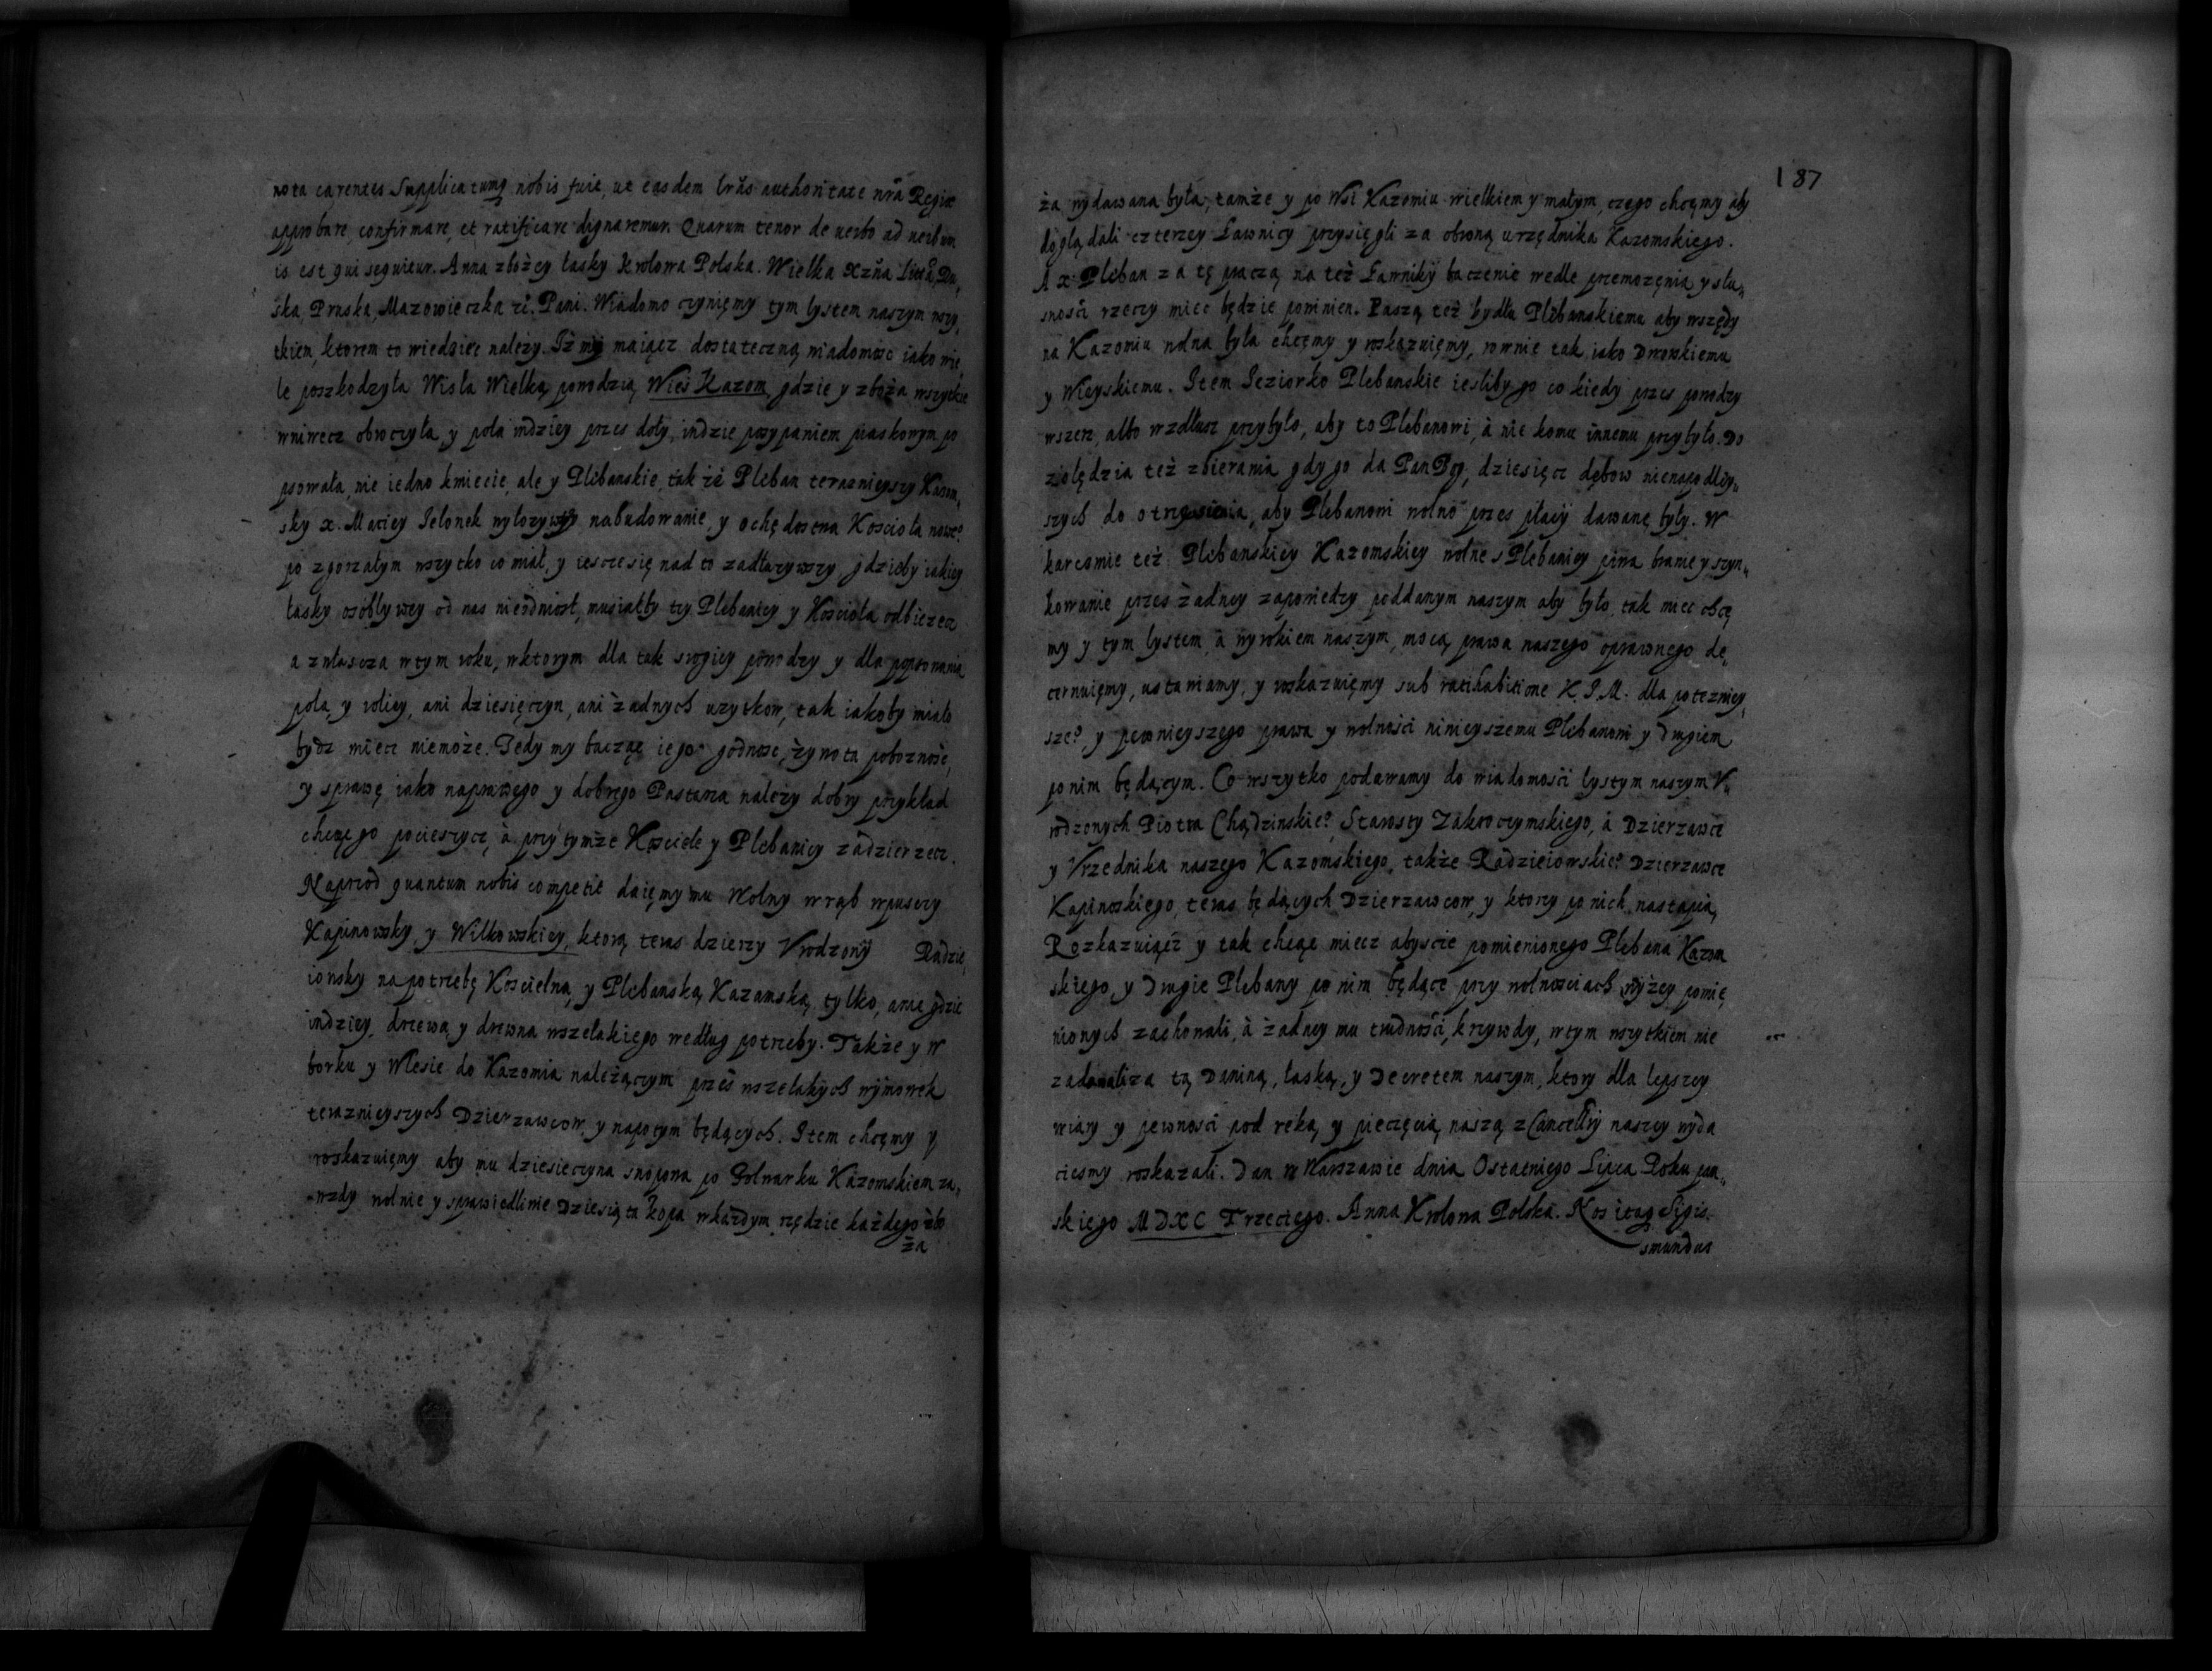 nota carentes Supplicatumq nobis fuit, ut easdem lrãs authoritate nrã Regia
approbare, confirmare, et ratificare dignaremur. Quarum tenor de uerbo ad uerbum
is est qui sequitur. Anna z bożey łasky Krolowa Polska. Wielka Xżna Litta, Ru,
ska, Pruska, Mazowieczka rẽ. Pani. Wiadomo czynięmy tym lystem naszym wszy,
tkiem, ktorem to wiedziec należy. Iż my maiącz dostateczną wiadomosc iako wie,
le poszkodzyła Wisła Wielką powodzią, Wieś Kazom, gdzie y zboża wszytkie
wniwecz obroczyła, y pola indziey przes doły, indzie posypaniem piaskowym po
psowała, nie iedno kmiecie, ale y Plebanskie, tak że Pleban teraznieyszy Kazom,
sky x. Maciey Ielonek wyłozywszy nabudowanie, y ochędostwa Kosciola nowe?
po zgorzałym wszytko co miał, y iescze się nad to zadłuzywszy, gdzieby iakiey
łasky osoblywey od nas nieodniosł, musiałby tey Plebaniey y Kosciola odbiezecz
a zwłascza wtym roku, wktorym dla tak srogiey powodzy y dla popsowania
pola, y roliey, ani dziesięczyn, ani żadnych uzytkow, tak iakoby miało
bydz miecz niemoże. Tedy my bacząc iego godnosc, żywota poboznośc,
y sprawę iako naprawego y dobrego Pastarza nalezy dobry przykład
chcąc go pocieszycz, à przytymże Kosciele y Plebaniey zadzierzecz.
Naprzod quantum nobis competit daięmy mu Wolny wrąb wpusczy
Kapinowsky, y Wilkowskiey, ktorą teras dzierzy Vrodzony Radzie,
iowsky napotrzebę Koscielną, y Plebanską Kazomską tylko, a nie gdzie
indziey, drzewa, y drewna wszelakiego według potrzeby. Także y w
borku y Wlesie do Kazomia należączym przes wszelakych wymowek
teraznieyszych Dzierzawcow y napotym będących. Item chcęmy y
roskazuięmy aby mu dziesięczyna snopowa po Folwarku Kazomskiem za,
wzdy wolnie y sprawiedliwie Dziesiąta kopa wkażdym rzędzie każdego zbo
ża
187
ża wydawana była, tamże y po Wsi Kazomiu wielkiem y małym, czego chcęmy aby
doglądali czterzey Ławnicy przysięgli za obroną urzędnika Kazomskiego.
A x. Pleban za tę praczą na też Ławniky baczenie wedle przemożęnia y słu,
sności rzeczy miec będzie powinien. Paszą też bydłu Plebanskiemu aby wszędy
na Kazomiu wolna była chcęmy y roskazuięmy, rownie tak iako Dworskiemu
y Wieyskiemu. Item Ieziorko Plebanskie iesliby go co kiedy przes powodzy
wszerz, albo wzdłusz przybyło, aby to Plebanowi, à nie komu innemu przybyło. Do
żolędzia też zbierania gdy go da Pan Bog, dziesięcz dębow nienapodley,
szych do otrząsienia, aby Plebanowi wolno przes płacy dawane były. W
karczmie też Plebanskiey Kazomskiey wolne s Plebaniey piwa branie y szyn,
kowanie przes żadney zapowiedzy poddanym naszym aby było tak miec chcę
my y tym lystem, à wyrokiem naszym, mocą prawa naszego oprawnego de,
cernuięmy, ustawiamy, y roskazuięmy sub ratihabitione K.I.M. dla potezniey,
sze? y pewnieyszego prawa y wolności ninieyszemu Plebanowi y drugiem
po nim będącym. Co wszytko podawamy do wiadomości lystym naszym V,
rodzonych Piotra Chądzinskie? Starosty Zakroczymskiego, à Dzierzawce
y Vrzednika naszego Kazomskiego, także Radzieiowskie? Dzierzawce
Kapinoskiego, teras będących Dzierzawcow, y ktorzy po nich nastąpią,
Rozkazuiącz y tak chcąc miecz abyscie pomienionego Plebana Kazom
skiego, y Drugie Plebany po nim będące przy wolnosciach wyżey pomię
nionych zachowali, à żadney mu trudności, krzywdy, wtym wszytkiem nie
zadawali za tą Daniną, łaską, y Decretem naszym, ktory dla lepszey
wiary y pewności pod reką, y pieczęcią naszą z Cancellariy naszey wyda
ciesmy roskazali. Dan w Warszawie dnia Ostatniego Lipca Roku pan,
skiego MDXC Trzeciego. Anna Krolowa Polska. Nos itaq Sigis,
smundus